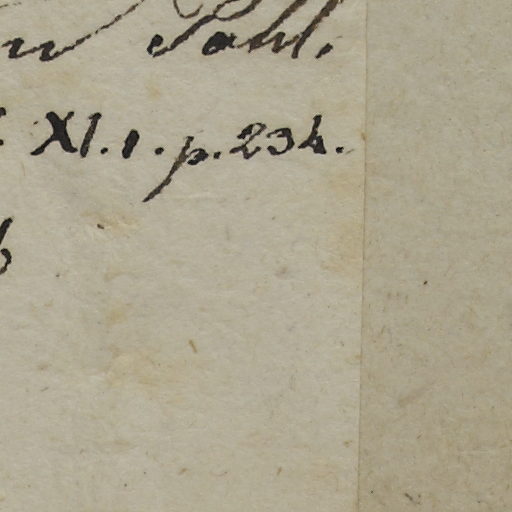 Pohl.
XI. 1. p. 234.